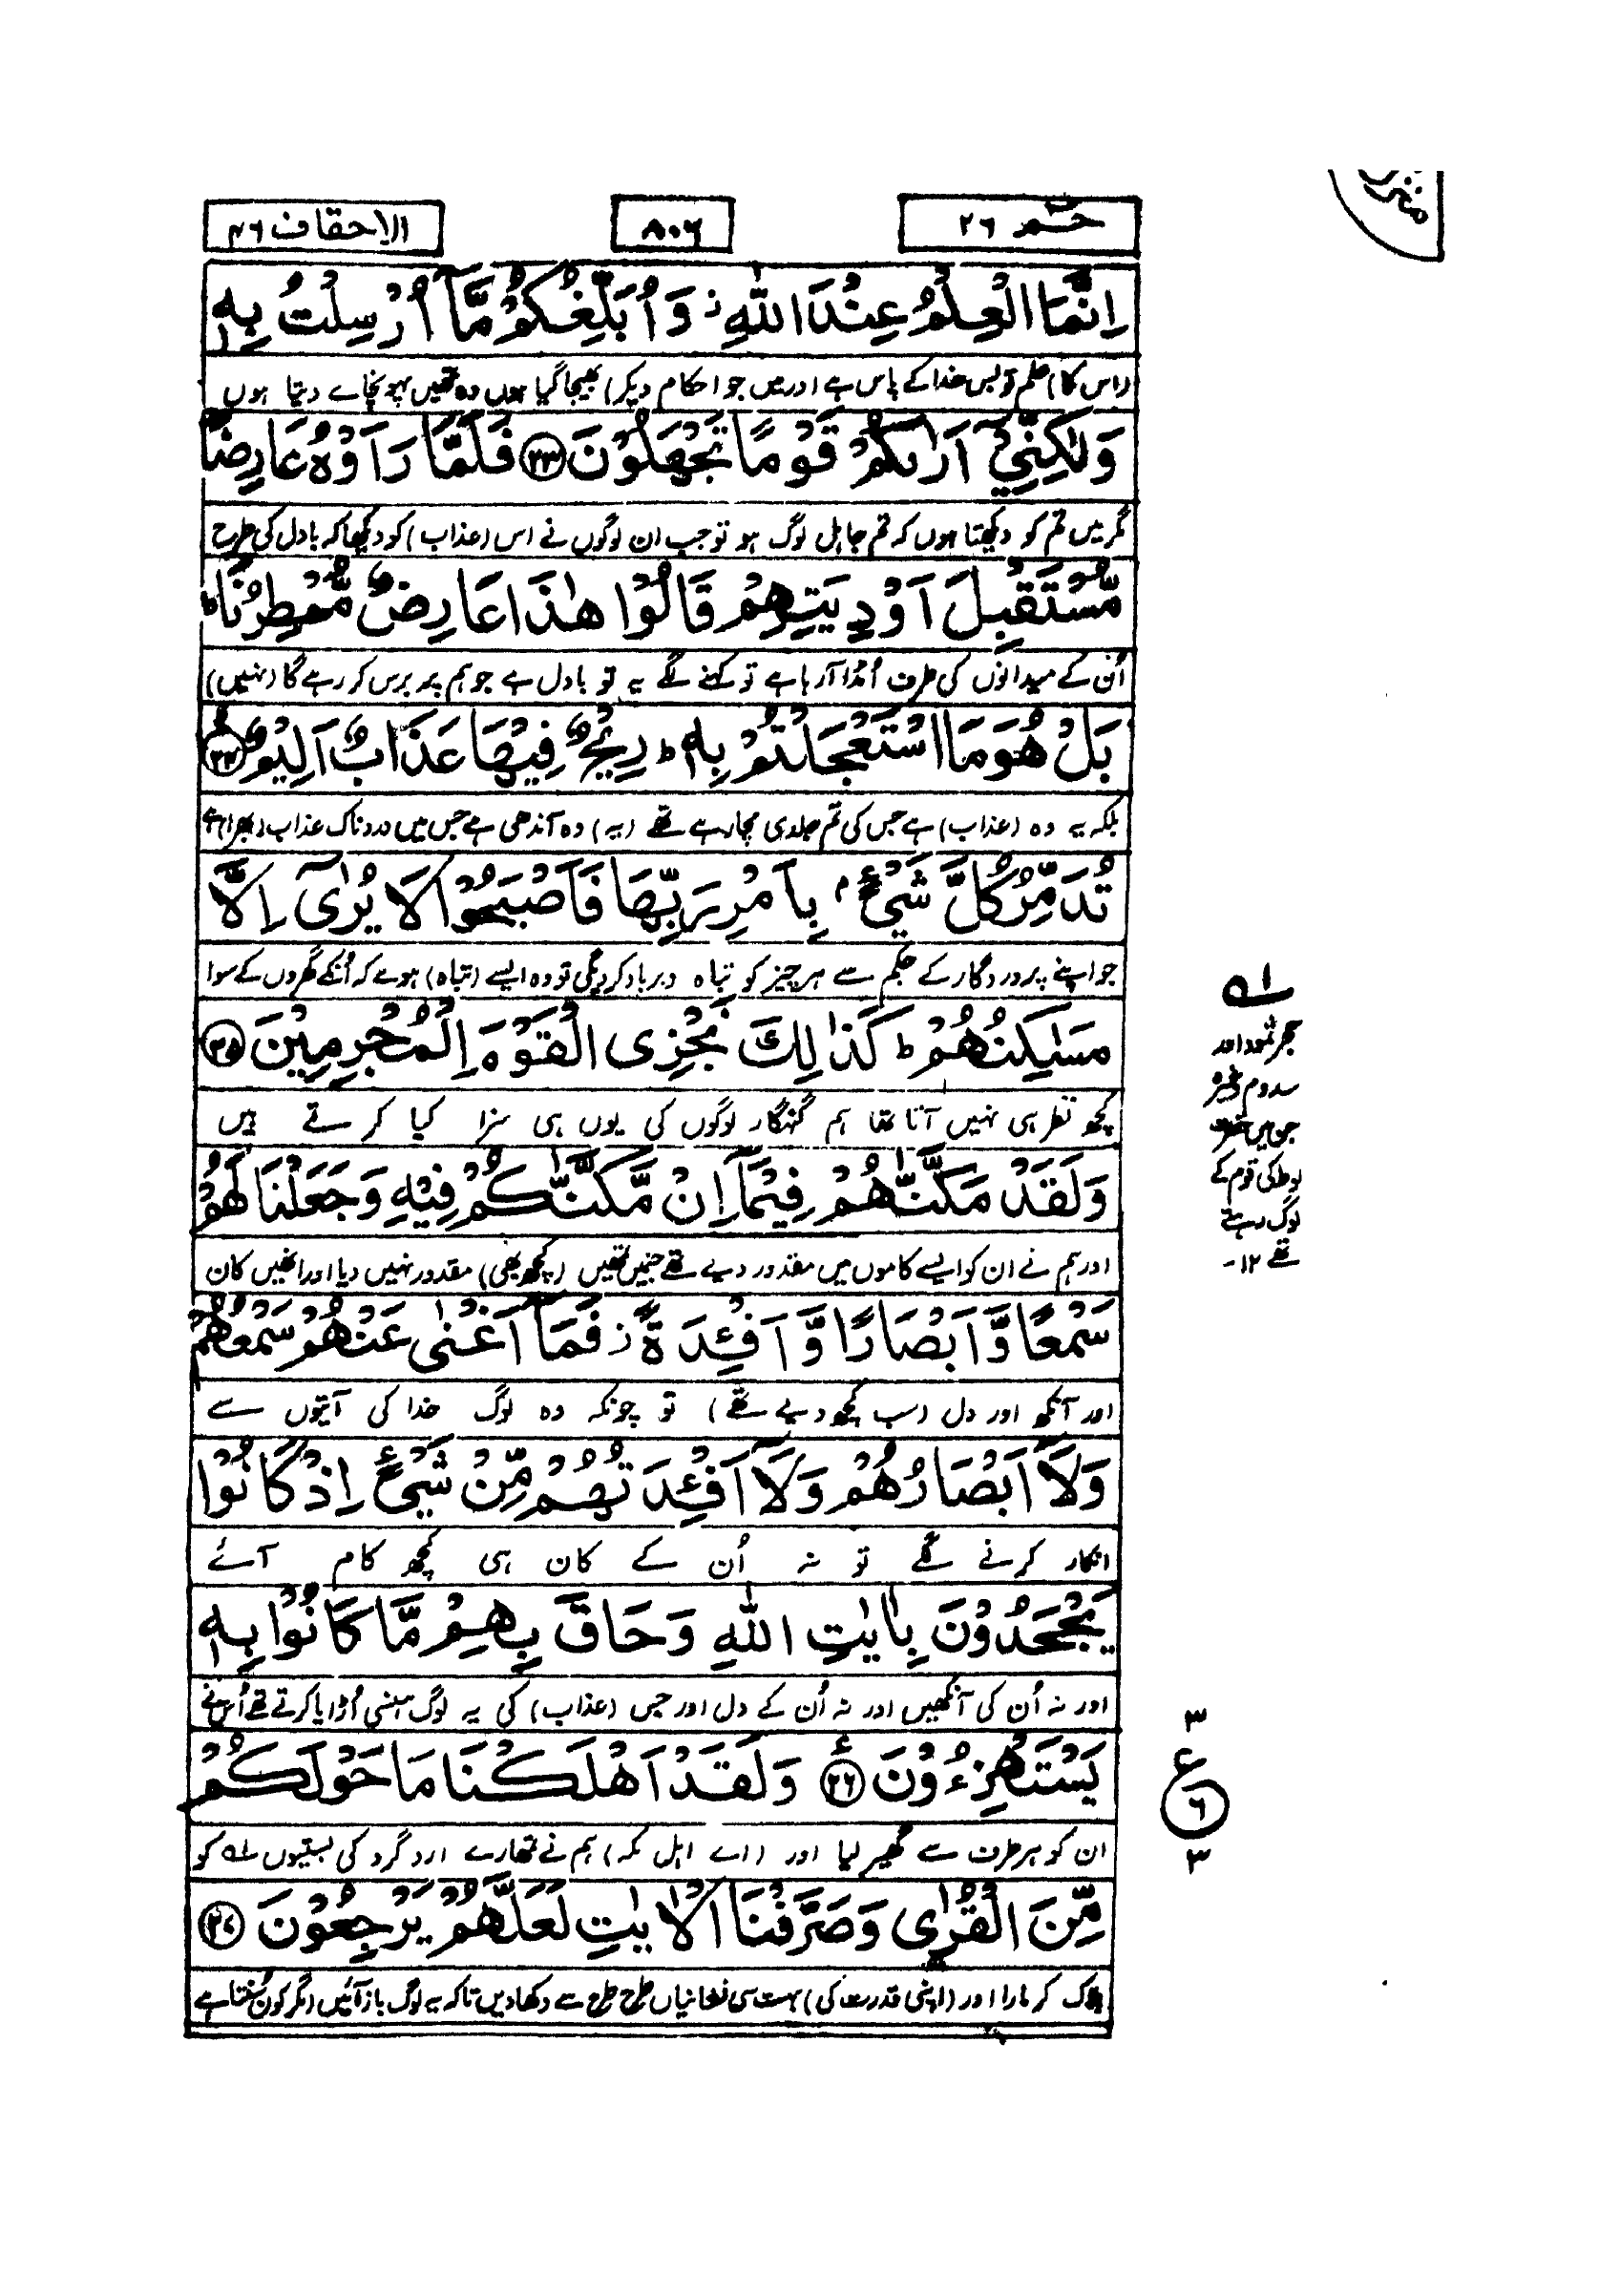 حٰمٓ ٢٦
٨٠٦
الاحقاف ٤٦
اِنَّمَا الْعِلْمُ عِنْدَ اللّٰهِ ۖ وَاُبَلِّغُكُمْ مَّآ اُرْسِلْتُ بِهٖ
(اس کا) علم تو بس خدا کے پاس ہے اور میں جو احکام دیکر) بھیجا گیا ہوں وہ تمھیں پہونچائے دیتا ہوں
وَلٰكِنِّيْٓ اَرٰىكُمْ قَوْمًا تَجْهَلُوْنَ ﴿٢٣﴾ فَلَمَّا رَاَوْهُ عَارِضًا
مگر میں تم کو دیکھتا ہوں کہ تم جاہل لوگ ہو تو جب ان لوگوں نے اس (عذاب) کو دیکھا کہ بادل کی طرح
مُّسْتَقْبِلَ اَوْدِيَتِهِمْ قَالُوْا هٰذَا عَارِضٌ مُّمْطِرُنَا ؕ
اُن کے میدانوں کی طرف اُمڈا آرہا ہے تو کہنے لگے یہ تو بادل ہے جو ہم پر برس کر رہے گا (نہیں)
بَلْ هُوَ مَا اسْتَعْجَلْتُمْ بِهٖ ؕ رِيْحٌ فِيْهَا عَذَابٌ اَلِيْمٌ ﴿٢٤﴾
بلکہ یہ وہ (عذاب) ہے جس کی تم جلدی مچا رہے تھے (یہ) وہ آندھی ہے جس میں دردناک عذاب (بھرا) ہے
تُدَمِّرُ كُلَّ شَيْءٍۭ بِاَمْرِ رَبِّهَا فَاَصْبَحُوْا لَا يُرٰٓى اِلَّا
جو اپنے پروردگار کے حکم سے ہر چیز کو تباہ و برباد کر دیگی تو وہ ایسے (تباہ) ہوے کہ اُنکے گھروں کے سوا
مَسٰكِنُهُمْ ؕ كَذٰلِكَ نَجْزِى الْقَوْمَ الْمُجْرِمِيْنَ ﴿٢٥﴾
کچھ نظر ہی نہیں آتا تھا ہم گنہگار لوگوں کی یوں ہی سزا کیا کرتے ہیں
وَلَقَدْ مَكَّنّٰهُمْ فِيْمَآ اِنْ مَّكَّنّٰكُمْ فِيْهِ وَجَعَلْنَا لَهُمْ
اور ہم نے ان کو ایسے کاموں میں مقدور دیے تھے جنہیں تمھیں (کچھ بھی) مقدور نہیں دیا اور انھیں کان
سَمْعًا وَّاَبْصَارًا وَّاَفْئِدَةً ۖ فَمَآ اَغْنٰى عَنْهُمْ سَمْعُهُمْ
اور آنکھ اور دل (سب کچھ دیے تھے) تو چونکہ وہ لوگ خدا کی آیتوں سے
وَلَآ اَبْصَارُهُمْ وَلَآ اَفْئِدَتُهُمْ مِّنْ شَيْءٍ اِذْ كَانُوْا
انکار کرنے لگے تو نہ اُن کے کان ہی کچھ کام آئے
يَجْحَدُوْنَ بِاٰيٰتِ اللّٰهِ وَحَاقَ بِهِمْ مَّا كَانُوْا بِهٖ
اور نہ اُن کی آنکھیں اور نہ اُن کے دل اور جس (عذاب) کی یہ لوگ ہنسی اُڑایا کرتے تھے اُس نے
يَسْتَهْزِءُوْنَ ﴿٢٦﴾ ع وَلَقَدْ اَهْلَكْنَا مَا حَوْلَكُمْ
ان کو ہر طرف سے گھیر لیا اور (اے اہل مکہ) ہم نے تمھارے ارد گرد کی بستیوں لہ کو
مِّنَ الْقُرٰى وَصَرَّفْنَا الْاٰيٰتِ لَعَلَّهُمْ يَرْجِعُوْنَ ﴿٢٧﴾
ہلاک کر مارا اور (اپنی قدرت کی) بہت سی نشانیاں طرح طرح سے دکھا دیں تاکہ یہ لوگ باز آئیں (مگر کون سنتا ہے
لہ
حجر ثمود اور
سدوم وغیرہ
جن میں حضرت
لوط کی قوم کے
لوگ رہتے
تھے ١٢-
٣
ع
٦
٣